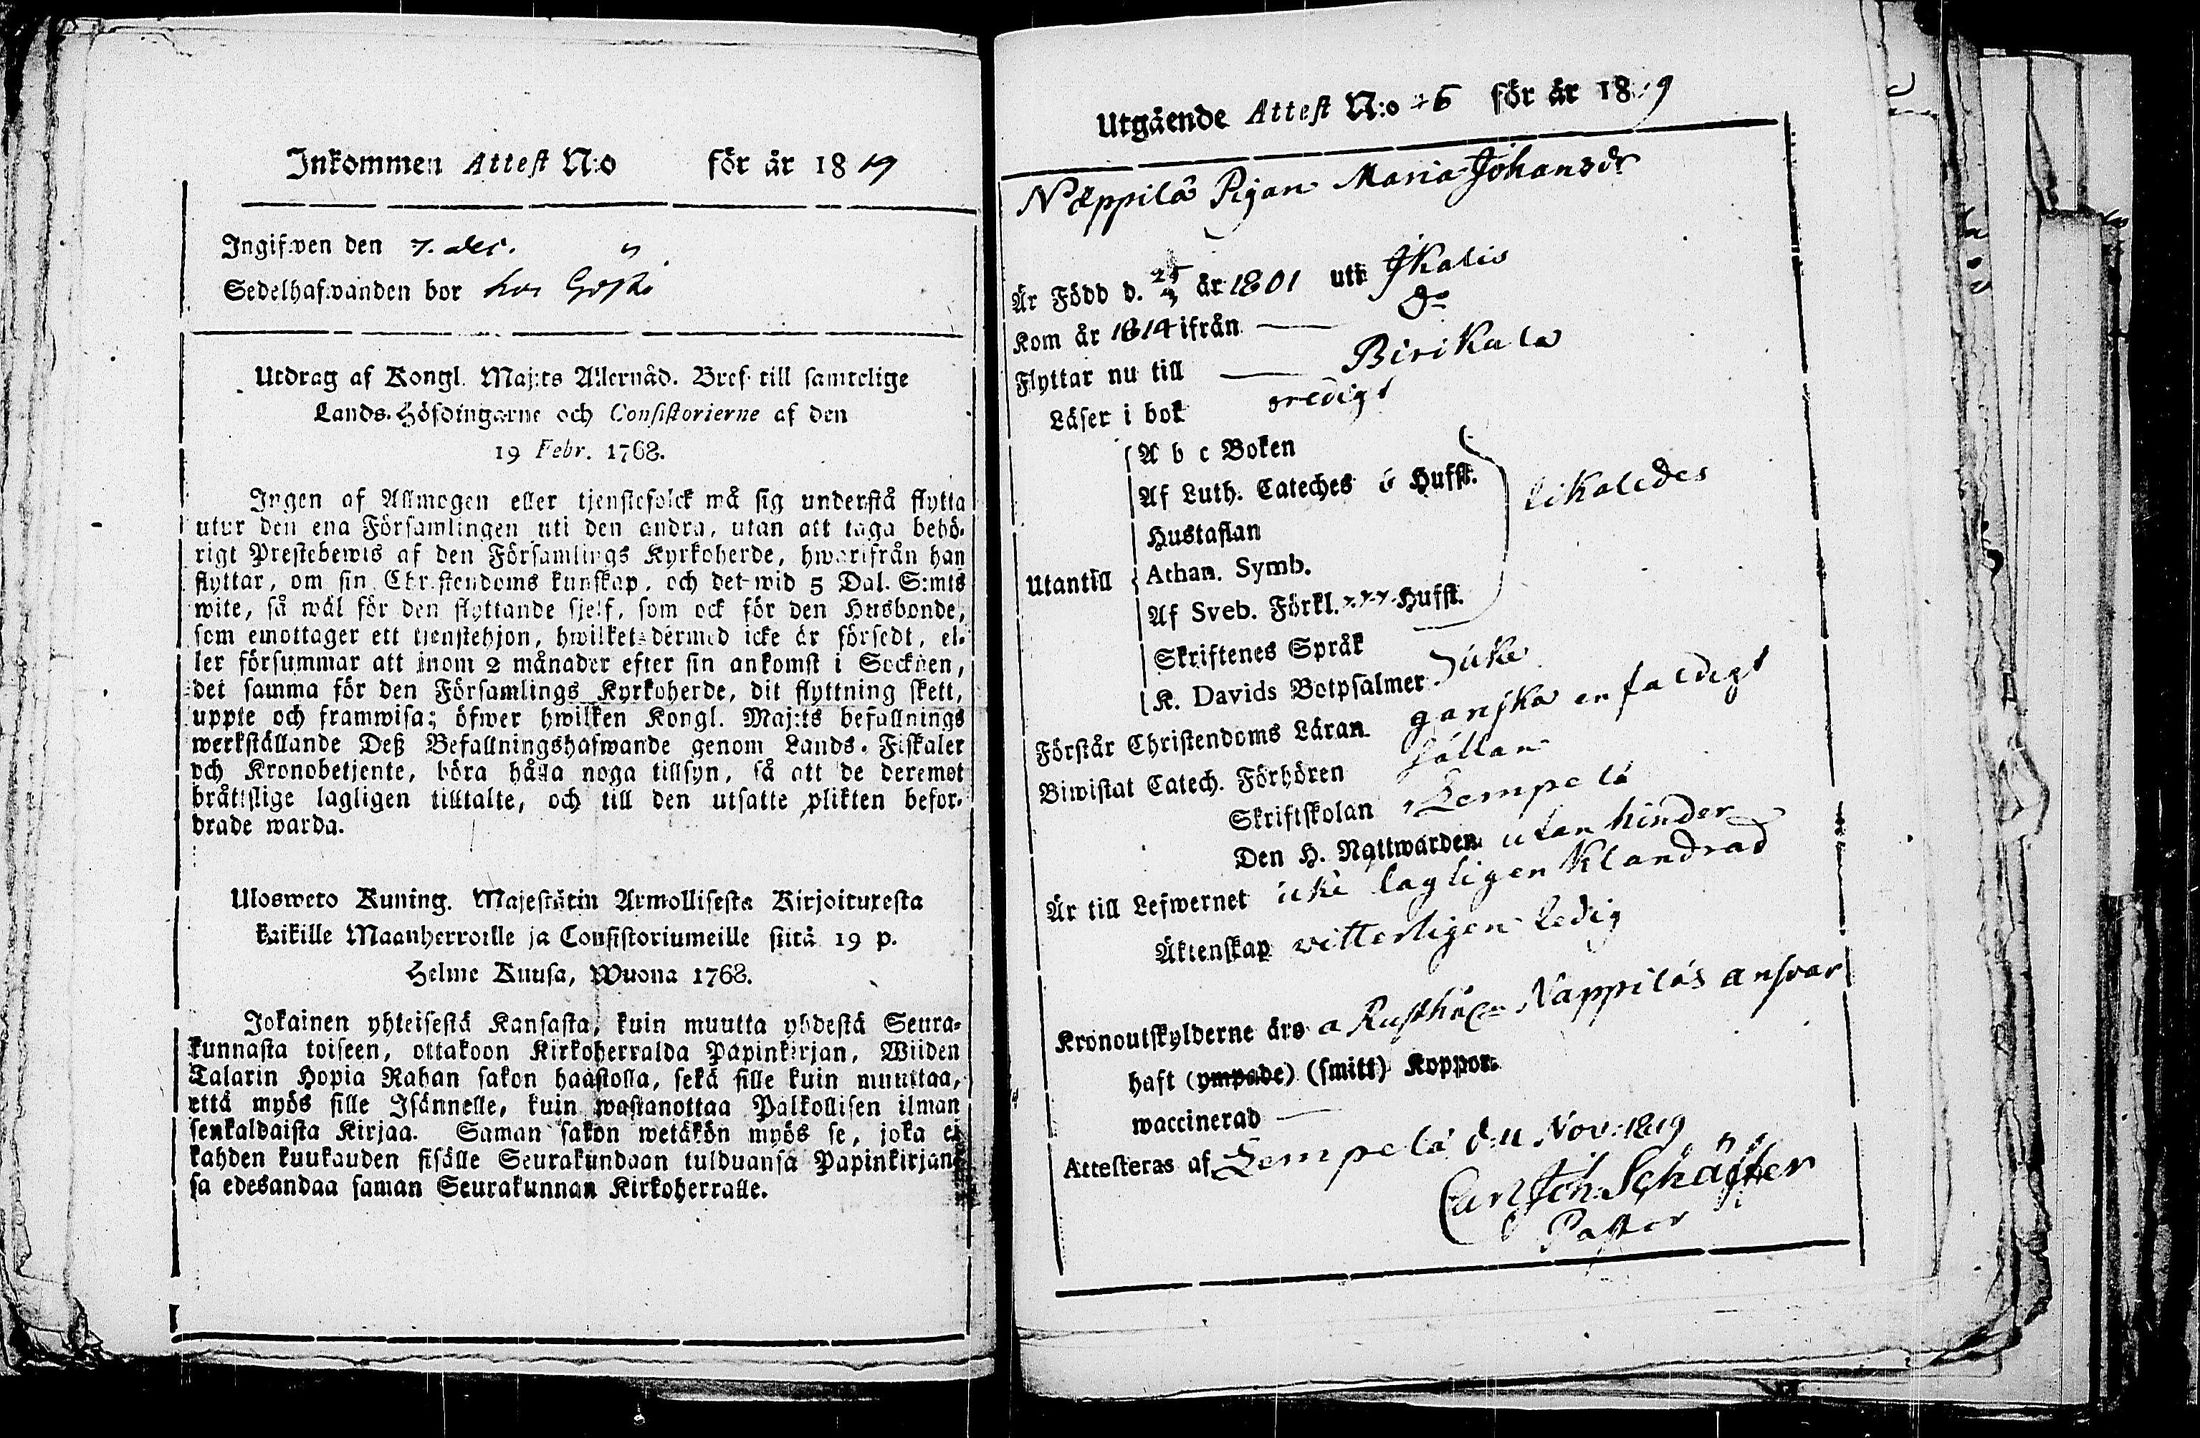 Inkommen Attest N:o för år 1819
Ingifwen den 7. dec.
Sedelhafwanden bor hos
Utdrag af Kongl. Maj:ts Allernåd. Bref till samtelige
Lands-Höfdingarne och Consistorierne af den
19 Febr. 1768.
Ingen af Allmogen eller tjenstefolck må sig understå flytta
utur den ena Församlingen uti den andra, utan att taga behö-
rigt Prestebewis af den Församlings Kyrkoherde, hwarifrån han
flyttar, om sin Christendoms kunskap, och det wid 5 Dal. S:mts
wite, så wäl för den flyttande sjelf, som ock för den Husbonde,
som emottager ett tjenstehjon, hwilket dermed icke är försedt, el-
ler försummar att inom 2 månader efter sin ankomst i Socknen,
det samma för den Församlings Kyrkoherde, dit flyttning skett,
uppte och framwisa; öfwer hwilken Kongl. Maj:ts befallnings
werkställande Deß Befallningshafwande genom Lands-Fiskaler
och Kronobetjente, böra hålla noga tillsyn, så att de deremot
bråttslige lagligen tilltalte, och till den utsatte plikten befor-
drade warda.
Ulosweto Kuning. Majestätin Armollisesta Kirjoituxesta
kaikille Maanherroille ja Consistoriumeille siitä 19 p.
Helme Kuusa, Wuona 1768.
Jokainen yhteisestä Kansasta, kuin muutta yhdestä Seura-
kunnasta toiseen, ottakoon Kirkoherralda Papinkirjan, Wiiden
Talarin Hopia Rahan sakon haastolla, sekä sille kuin muuttaa,
että myös sille Isännelle, kuin wastanottaa Palkollisen ilman
senkaldaista Kirjaa. Saman sakon wetäkön myös se, joka ei
kahden kuukauden sisälle Seurakundaan tulduansa Papinkirjan-
sa edesandaa saman Seurakunnan Kirkoherralle.
Utgående Attest N:o 26 för år 1819
Næppilä Pigan Maria Johansdr
Är Född d. 25/3 år 1801 uti Ikalis
Kom år 1814 ifrån — do
Flyttar nu till — Birikala
Läser i bok oredigt
A b c Boken
Af Luth. Cateches 6 Hufst.
Hustaflan
likaledes
Utantill
Athan. Symb.
Af Sveb. Förkl. Hufst.
Skriftenes Språk
K. Davids Botpsalmer icke
Förstår Christendoms Läran ganska enfaldigt
Biwistat Catech. Förhören sällan
Skriftskolan i Lempelä
Den H. Nattwarden utan hinder
Är till Lefwernet icke lagligen klandrad
Äktenskap witterligen ledig
Kronoutskylderne äro å Rusthåll Näppiläs answar
haft (ympade) (smitt) Koppor.
waccinerad —
Attesteras af Lempelä d. 11 Nov. 1819
Carl Joh. Schäffer
Pastor